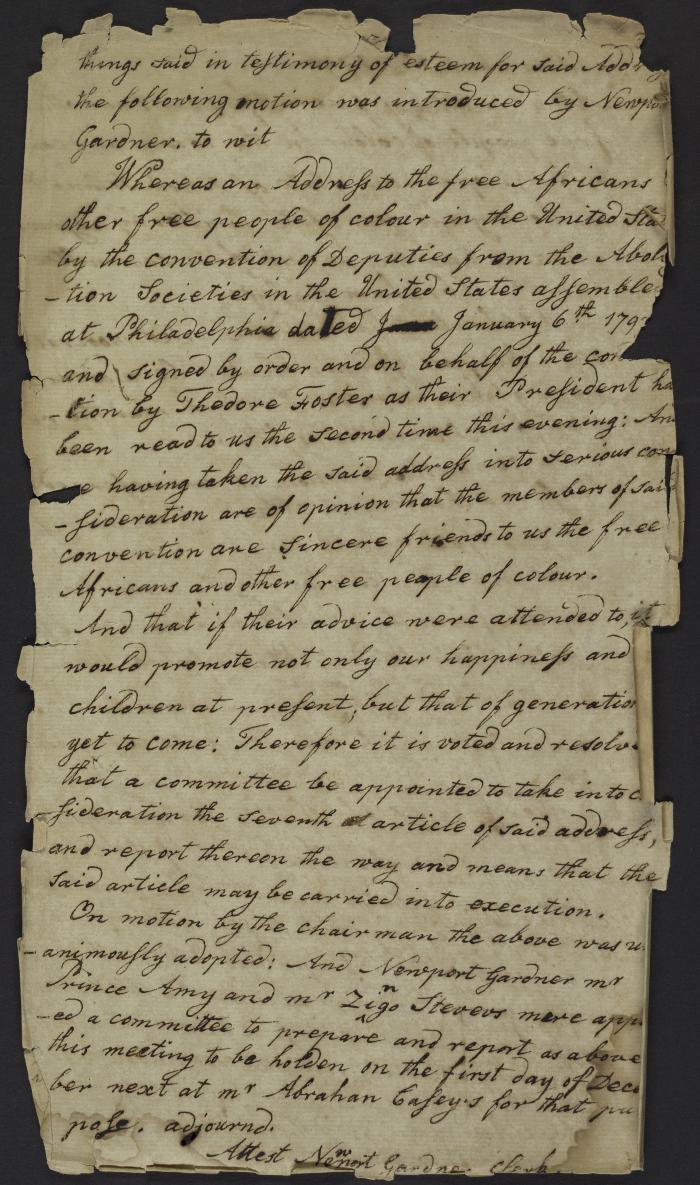 things said in testimony of esteem for said Addr
the following motion was introduced by Newpor
Gardner. to wit
Whereas an Address to the free Africans
other free people of colour in the United Sta
by the convention of Deputies from the Abol
-tion Societies in the United States assemble
at Philadelphia dated January 6th 179
and signed by order and on behalf of the con
-tion by Thedore Foster as their President ha
been read to us the second time this evening: An
e having taken the said address into serious con
-sideration are of opinion that the members of sai
convention are sincere friends to us the free
Africans and other free people of colour.
And that if their advice were attended to, it
would promote not only our happiness and
children at present, but that of generation
yet to come: Therefore it is voted and resolve
that a committee be appointed to take into c
-sideration the seventh article of said address,
and report thereon the way and means that the
said article may be carried into execution.
On motion by the chairman the above was u
-animously adopted: And Newport Gardner mr
Prince Amy and mr Zingo Stevevs were app
-ed a committee to prepare and report as above
this meeting to be holden on the first day of Dece
ber next at mr Abrahan Casey's for that pu
pose. adjournd.
Attest Newport Gardne Clerk.